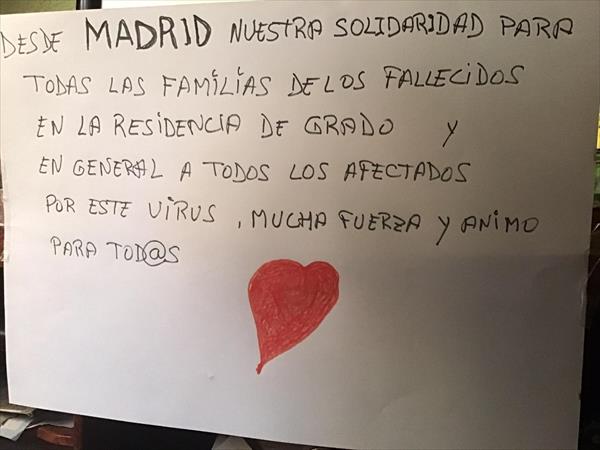 DESDE MADRID NUESTRA SOLIDARIDAD PARA
TODAS LAS FAMILIAS DE LOS FALLECIDOS
EN LA RESIDENCIA DE GRADO Y
EN GENERAL A TODOS LOS AFECTADOS
POR ESTE VIRUS, MUCHA FUERZA Y ANIMO
PARA TOD@S